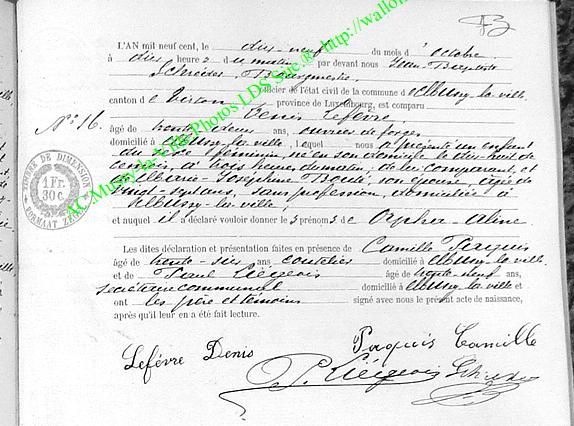 L'AN mil neuf cent, le dix-neuf du mois d'octobre
à dix heures du matin, par devant nous Jean Baptiste
Bourgmestre
officier de l'état civil de la commune d Mussy-la-ville
canton d e Virton, province de Luxembourg, est comparu
N° 16. Denis Lefèvre,
âgé de trente deux ans, ouvrier de forges
domicilié à Mussy-la-ville, lequel nous a présenté un enfant
du sexe féminin, né en son domicile le dix-huit de
ce mois, à huit heures du matin, de lui comparant, et
de Marie Joséphine son épouse, âgée de
vingt- ans, sans profession, domiciliée à
Mussy-la-ville
et auquel il a déclaré vouloir donner le s prénom s de Orpha-Aline
Les dites déclaration et présentation faites en présence de Camille Paquis
âgé de trente-six ans, domicilié à Mussy-la-ville
et de Paul Liégeois âgé de trente-neuf ans,
secrétaire communal domicilié à Mussy-la-ville et
ont les père et témoins signé avec nous le présent acte de naissance,
après qu'il leur en a été fait lecture.
Lefèvre Denis Paquis Camille
P. Liégeois
TIMBRE DE DIMENSION
1 Fr.
30 c.
AC Mussy-la-Ville Photos LDS Site @ http://wallo